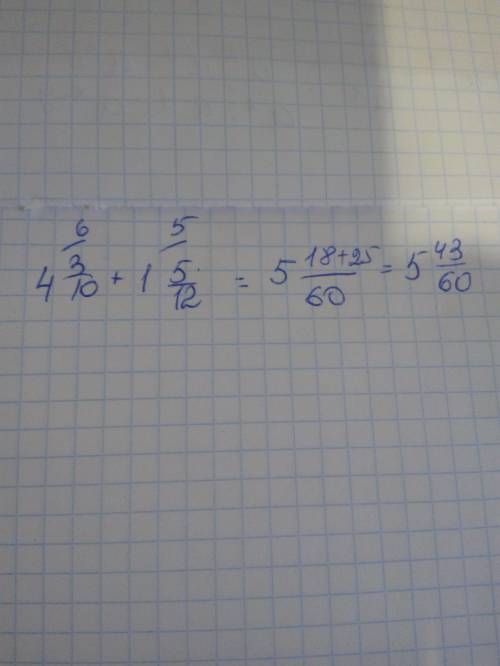 4 3/10 (6) + 1 5/12 (5) = 5 18+25/60 = 5 43/60